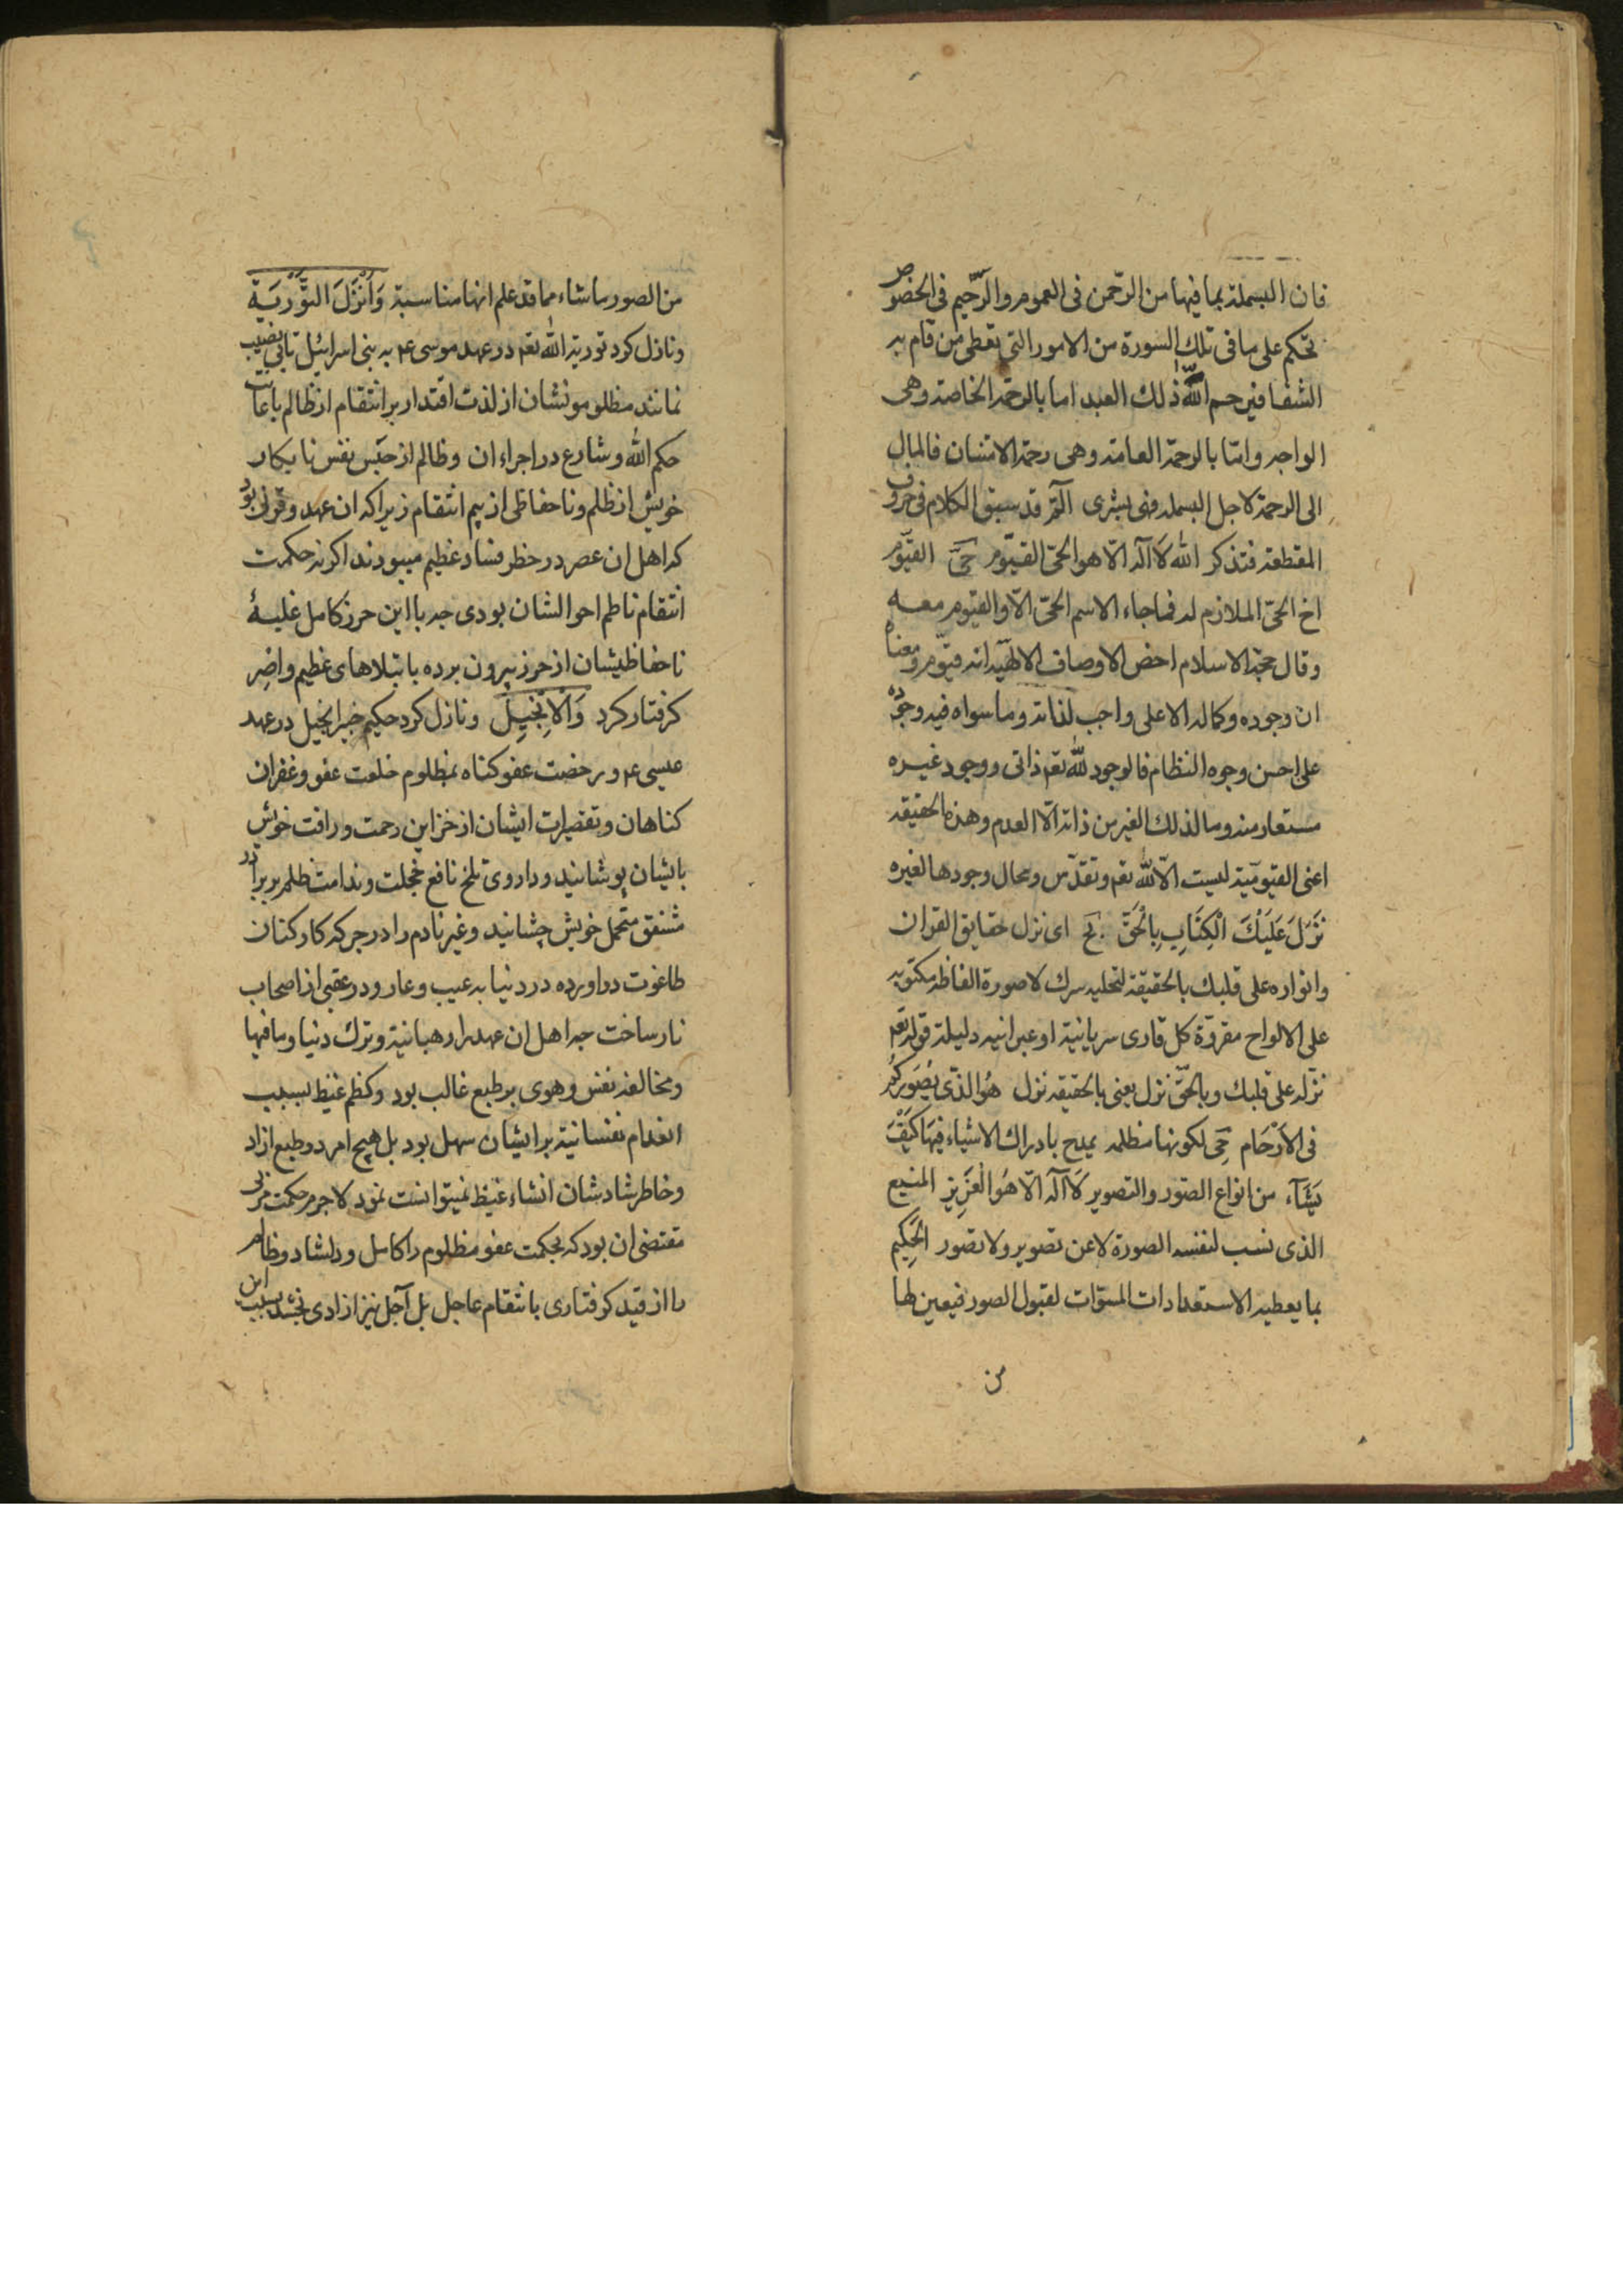 فان البسملة بما فيها من الرحمن فى العموم والرّحيم فى الخصوص
تحكم على ما فى تلك السورة من الامور التى تعطى من قام به
الشقا فيرحم اللّه ذلك العبد اما بالرحمة الخاصة وهى
الواجبه وامّا بالرحمة العامة وهى رحمة الامتنان فالمال
الى الرحمة لاجل البسملة فهى بشرى الٓمٓ قد سبق الكلام فى حروف
المقطعة فتذكر اللّه لَا آله الّا هو الحىّ القيّوم القيّوم
اخ الحىّ الملازم له فما جاء الاسم الحىّ الّا والقيّوم معه
وقال حجة الاسلام اخص الاوصاف الالهيّة انه قيّوم ومعناه
ان وجوده وكماله الاعلى واجب لذاته وما سواه فيه وجوده
على احسن وجوه النظام فالوجود للّه تعم ذاتى ووجود غيره
مستعار منه وما لذلك الغير من ذاته الّا العدم وهذه الحقيقه
اعنى القيوميّة ليست الّا للّه تعم وتقدّس ومحال وجودها لغيره
نَزَّلَ عَلَيْكَ الْكِتَابَ بِالْحَقِّ اى نزل حقايق القران
وانواره على قلبك بالحقيقة لتحليه سرك لا صورة الفاظه مكتوبه
على الالواح مقروّة كل قارى سريانية او عبرانيه دليله قوله تعم
نزّله على قلبك وبالحقّ نزل يعنى بالحقيقه نزل هُوَ الذّى يُصَوِّرُكُم
فى الاَرْحَام لكونها مظلمه يمدح بادراك الاشياء فيها كَيْفَ
يَشَآء من انواع الصّور والتصوير لَا آله الّا هُوَ الْعَزِيز المنيع
الذى نسب لنفسه الصورة لا عن تصوير ولا تصور الْحَكِيم
بما يعطيه الاستعدادات المسوّات لقبول الصور فيعين لها
من
من الصور ما شاء مما قد علم انها مناسبة وَاَنْزَلَ التَّوْرٰيَةَ
ونازل كرد تورية اللّه تعم در عهد موسى ع به بنى اسرائيل تا بى نصيب
نمانند مظلوموشان از لذت اقتدار بر انتقام از ظالم باعانت
حكم اللّه وشارع در اجراء ان وظالم از حبس نفس نابكار
خويش از ظلم وناحفاظى از بيم انتقام زيرا كه ان عهد وقرنى بود
كه اهل ان عصر در خطر فساد عظيم ميبودند اكر نه حكمت
انتقام ناظم احوالشان بودى چه با اين حرز كامل غلبهٔ
ناحفاظيشان از حرز بيرون برده بابتلاهاى عظيم واضر
كرفتار كرد وَالْاِنْجِيلَ ونازل كرد حكيم خبير انجيل در عهد
عيسى ع وبرخصت عفو كناه بمظلوم خلعت عفو وغفران
كناهان وتقصيرات ايشان از خزاين رحمت ورافت خويش
بايشان پوشانيد وداروى تلخ نافع خجلت وندامت ظلم بر برادر
مشفق متحمل خويش چشانيد وغير نادم را در جركه كاركنان
طاغوت دراورده در دنيا به عيب وعار ودر عقبى از اصحاب
نار ساخت چه اهل ان عهد را رهبانية وترك دنيا وما فيها
ومخالفه نفس وهوى بر طبع غالب بود وكظم غيظ بسبب
انعدام نفسانية بر ايشان سهل بود بل هيچ امرد وطبع ازاد
وخاطر شادشان انشاء غيظ نميتوانست نمود لاجرم حكمت مربى
مقتضى ان بود كه بحكمت عفو مظلوم را كامل ودلشاد وظالم
را از قيد كرفتارى بانتقام عاجل بل آجل نيز ازادى بخشد بسبب اين